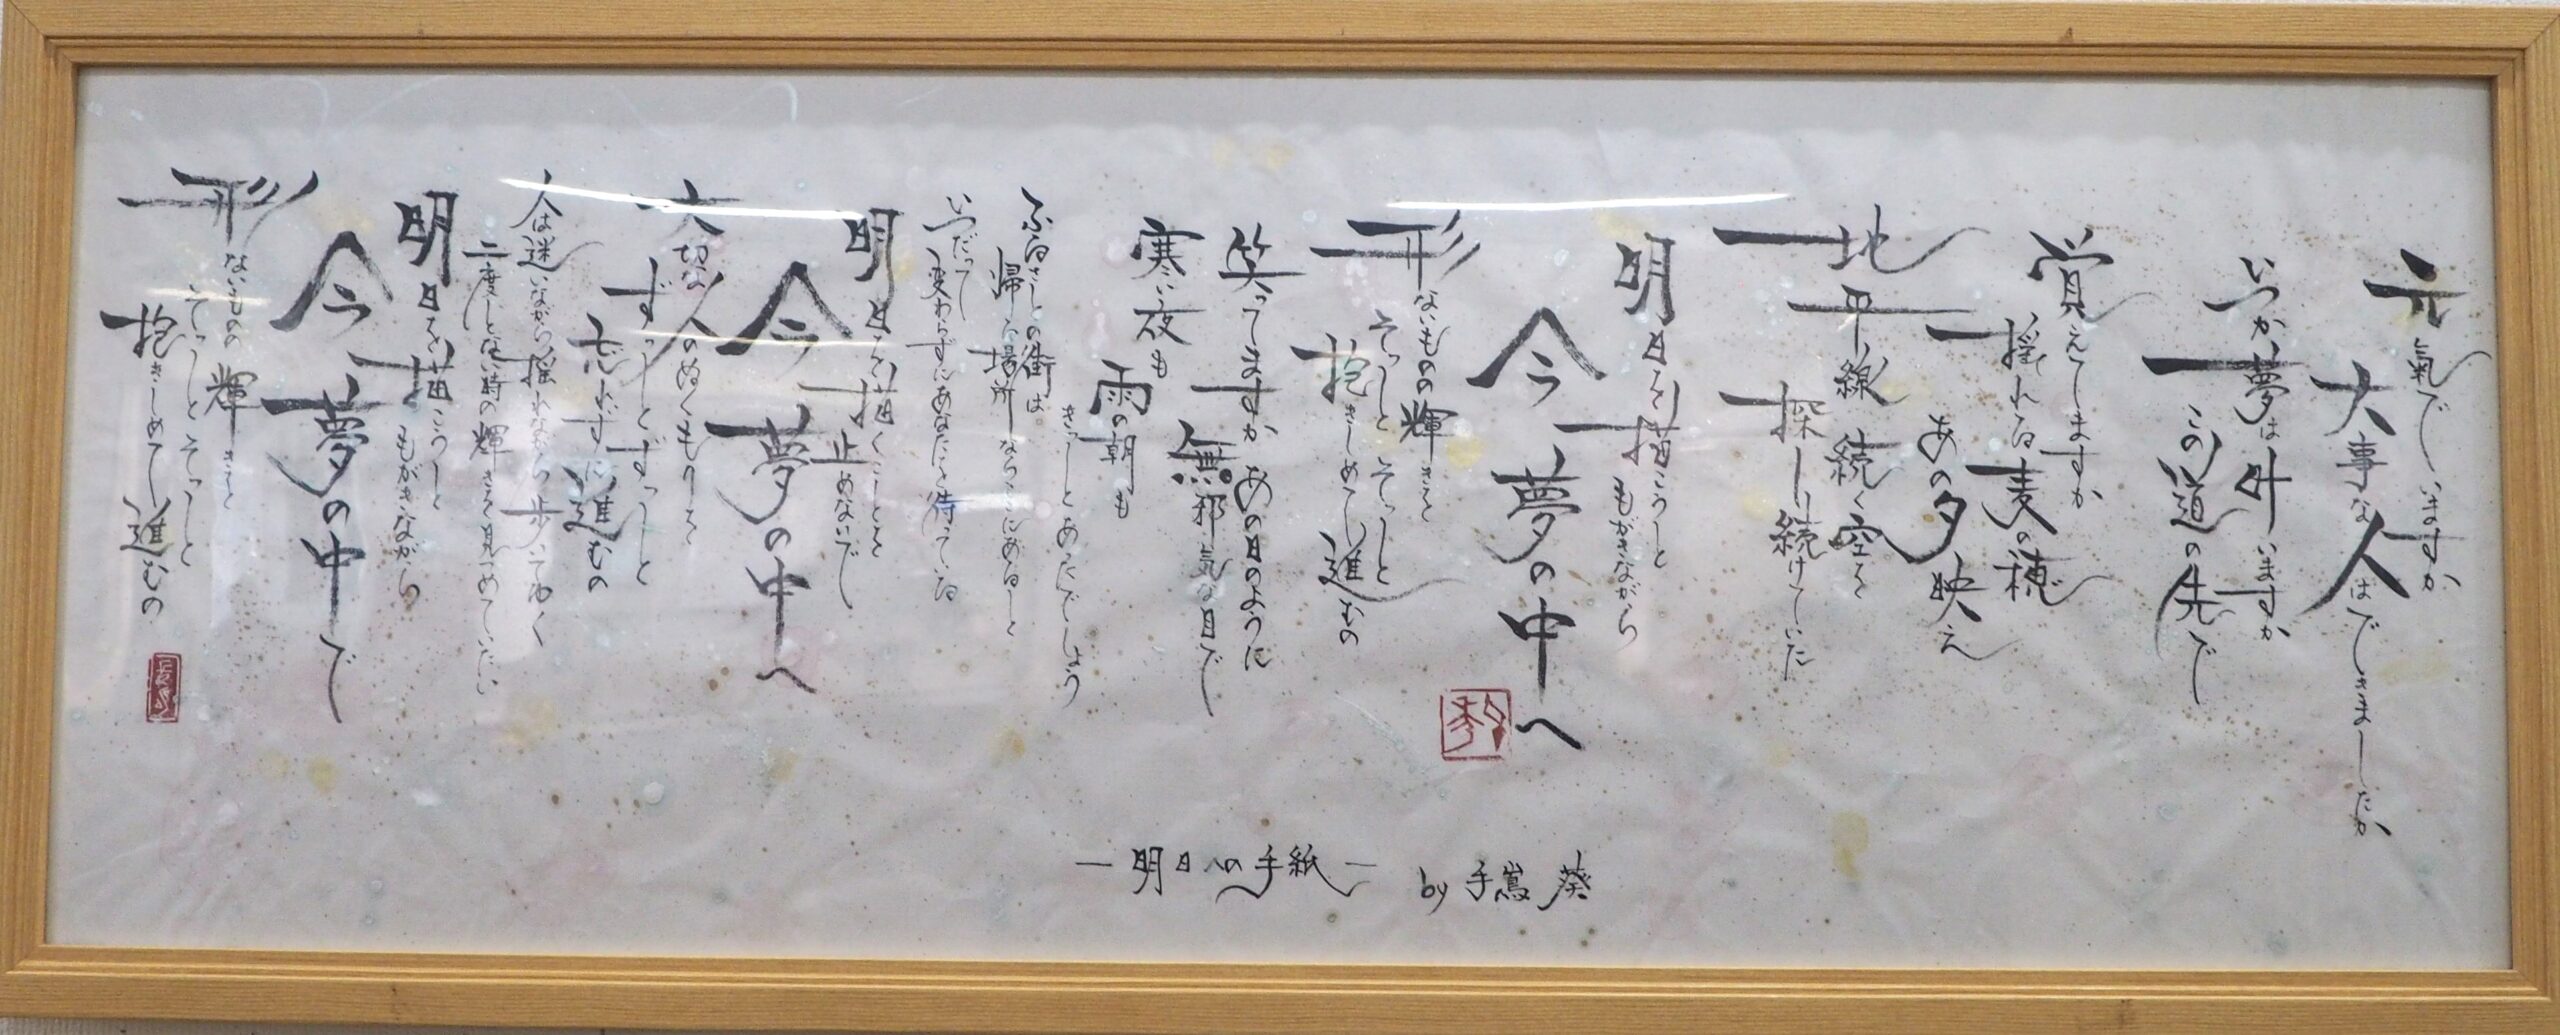 元氣でいますか
大事な人はできましたか
いつか夢は叶いますか
この道の先で
覚えてますか
揺れる麦の穂
あの夕映え
地平線続く空を
探し続けていた
明日を描こうと
もがきながら
今夢の中へ
形ないものの輝きを
そっとそっと
抱きしめて進むの
笑ってますかあの日のように
無邪気な目で
寒い夜も
雨の朝も
きっとあったでしょう
ふるさとの街は
帰る場所ならここにあると
いつだって
変わらずにあなたを待っている
明日を描くことを
止めないで
今夢の中へ
大切な人のぬくもりを
ずっとずっと
忘れずに進むの
人は迷いながら揺れながら歩いてゆく
二度とない時の輝きを見つめていたい
明日を描こうと
もがきながら
今夢の中で
形ないものの輝きを
そっとそっと
抱きしめて進むの
—明日への手紙—
by 手嶌葵